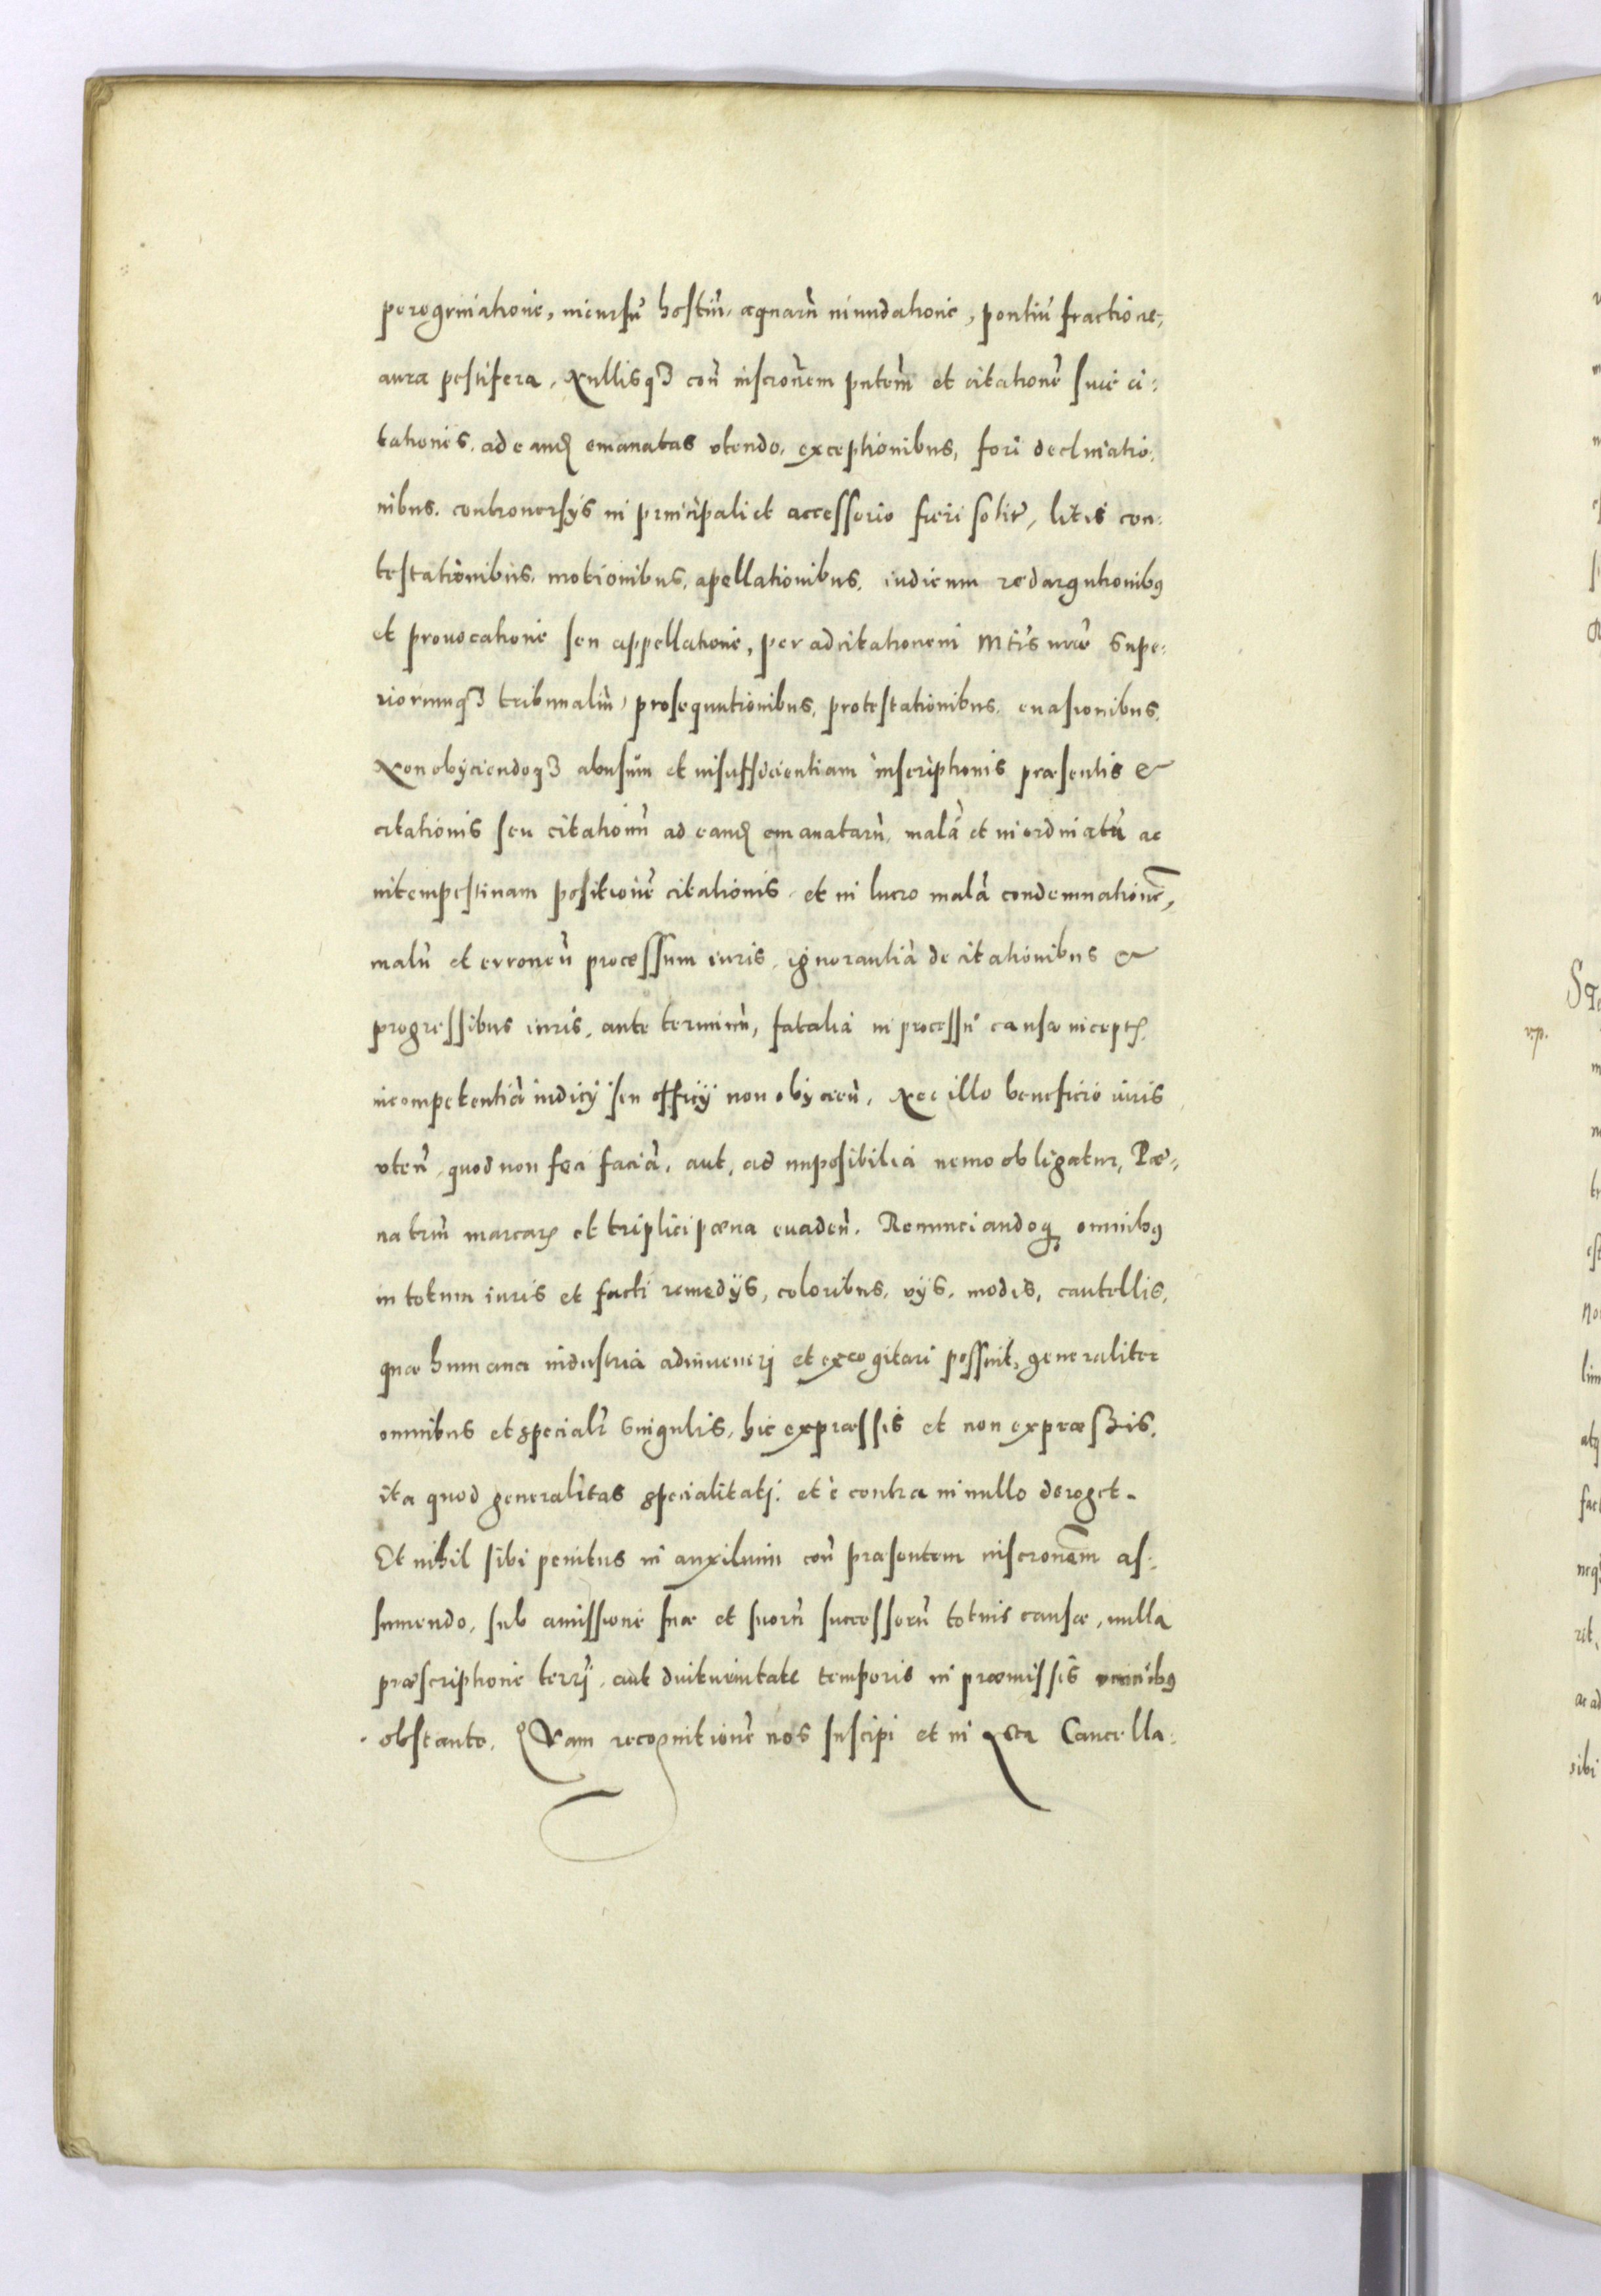 peregrinatione, incursu hostiũ, aquarũ inundatione, pontiũ fractione,
aura pestifera, Nullisqꝫ coñ inscronem pntem et citationẽ siue ci:
tationes, ad eand emanatas vtendo, exceptionibus, fori declinatio:
nibus, controuersÿs in principali et accessorio fieri solitꝭ, litis con:
testationibus, motionibus, apellationibus, iudicum redargutionibꝰ
et prouocatione seu appellatione, per adcitationem Mtis nræ Supe:
riorumqꝫ tribunaliũ, prosequutionibus, protestationibus, euasionibus,
Non obÿciendoqꝫ abusum et insufficientiam inscriptionis præsentis &
citationis seu citationũ ad eand emanatarũ, malã et inordinatã ac
intempestiuam positionẽ citationis, et in lucro malã condemnationẽ,
malũ et erroneũ processum iuris, ignorantiã de citationibus &
progressibus iuris, ante terminũ, fatalia in processu causæ inceptꝭ
incompetentiã iudicÿ seu officÿ non obÿcieñ, Nec illo beneficio iuris
vteñ, quod non feci faciã, aut, ad imposibilia nemo obligatur, Pæ:
na triũ marcarꝭ et triplici pæna euadeñ. Renunciandoqꝫ omnibꝰ
in totum iuris et facti remedÿs, coloribus, vÿs, modis, cautellis,
quæ humana industria adinueneri et excogitari possint, generaliter
omnibus et specialr singulis, hic expræssis et non expræsis,
ita quod generalitas specialitatj, et è contra in nullo deroget.
Et nihil sibi penitus in auxilium coñ præsentem inscronem as:
sumendo, sub amissione suæ et suorũ successorũ totius causæ, nulla
præscriptione terrj, aut diuturnitate temporis in præmissis omnibꝰ
obstante. Quam recognitionẽ nos suscipi et in Acta Cancella: